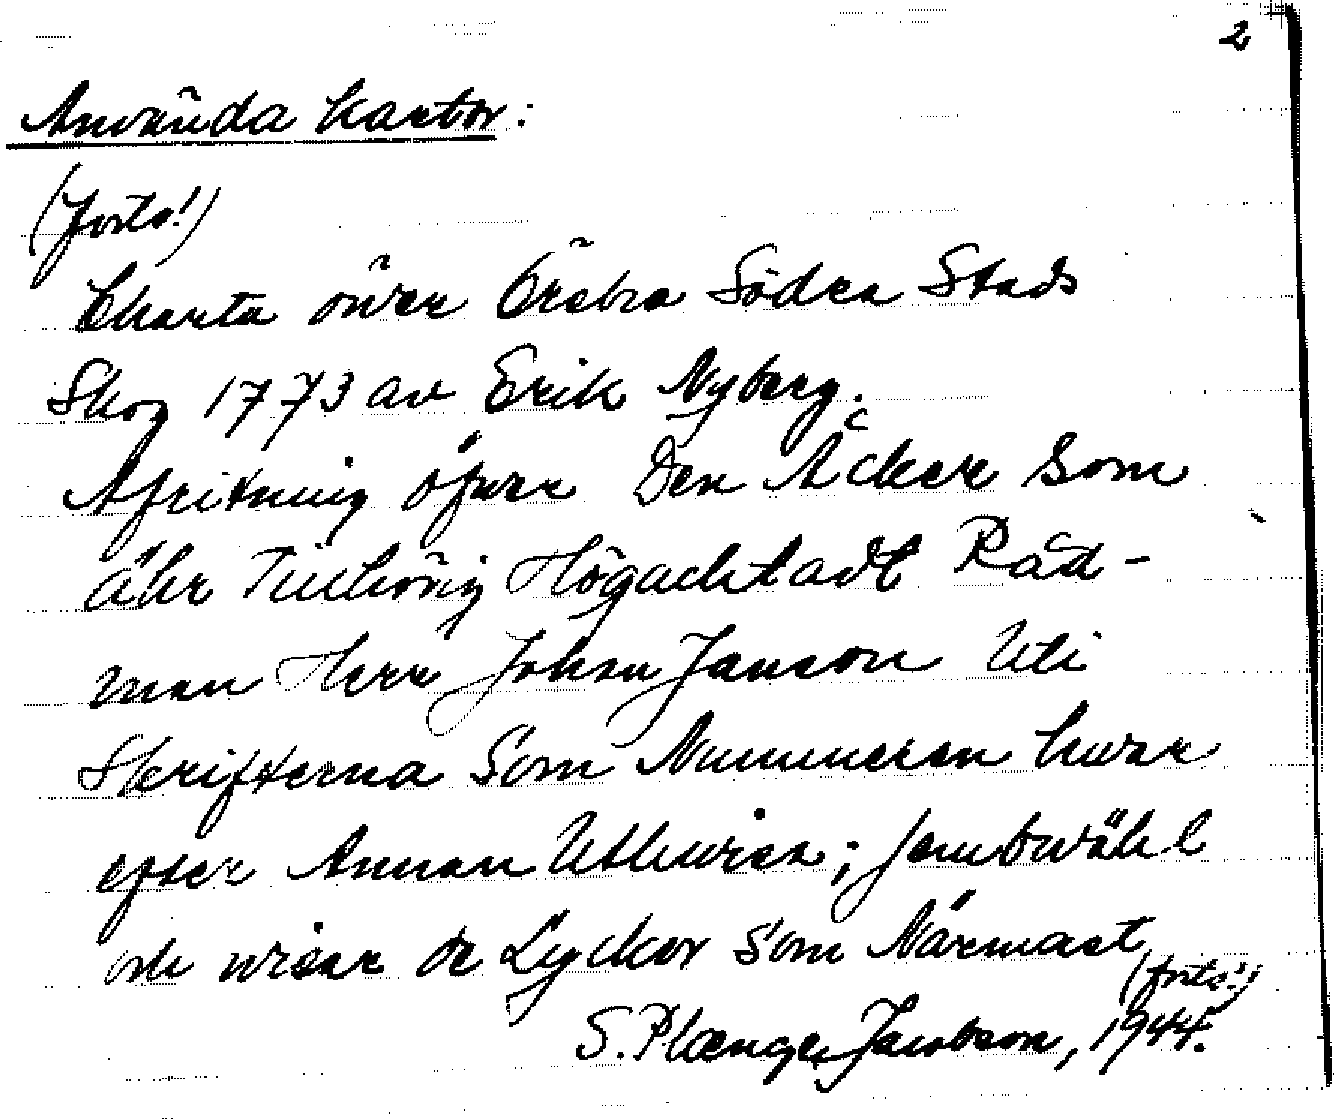 2
Använda kartor:
(forts!)
Charta öwer Örebro Södra Stads
Skog 1773 av Erik Nyberg.
Afritning öfwer Den Åcker som
ähr Tillhörig Högachtadt Råd-
man Herr Johan Janson Uti
Skrifterna Som Nummeren hwar
efter Annan Uthwisa; jembwähl
och wisar de Lyckor som Närmast
(forts!)
S. Plænge Jacobson, 1944.